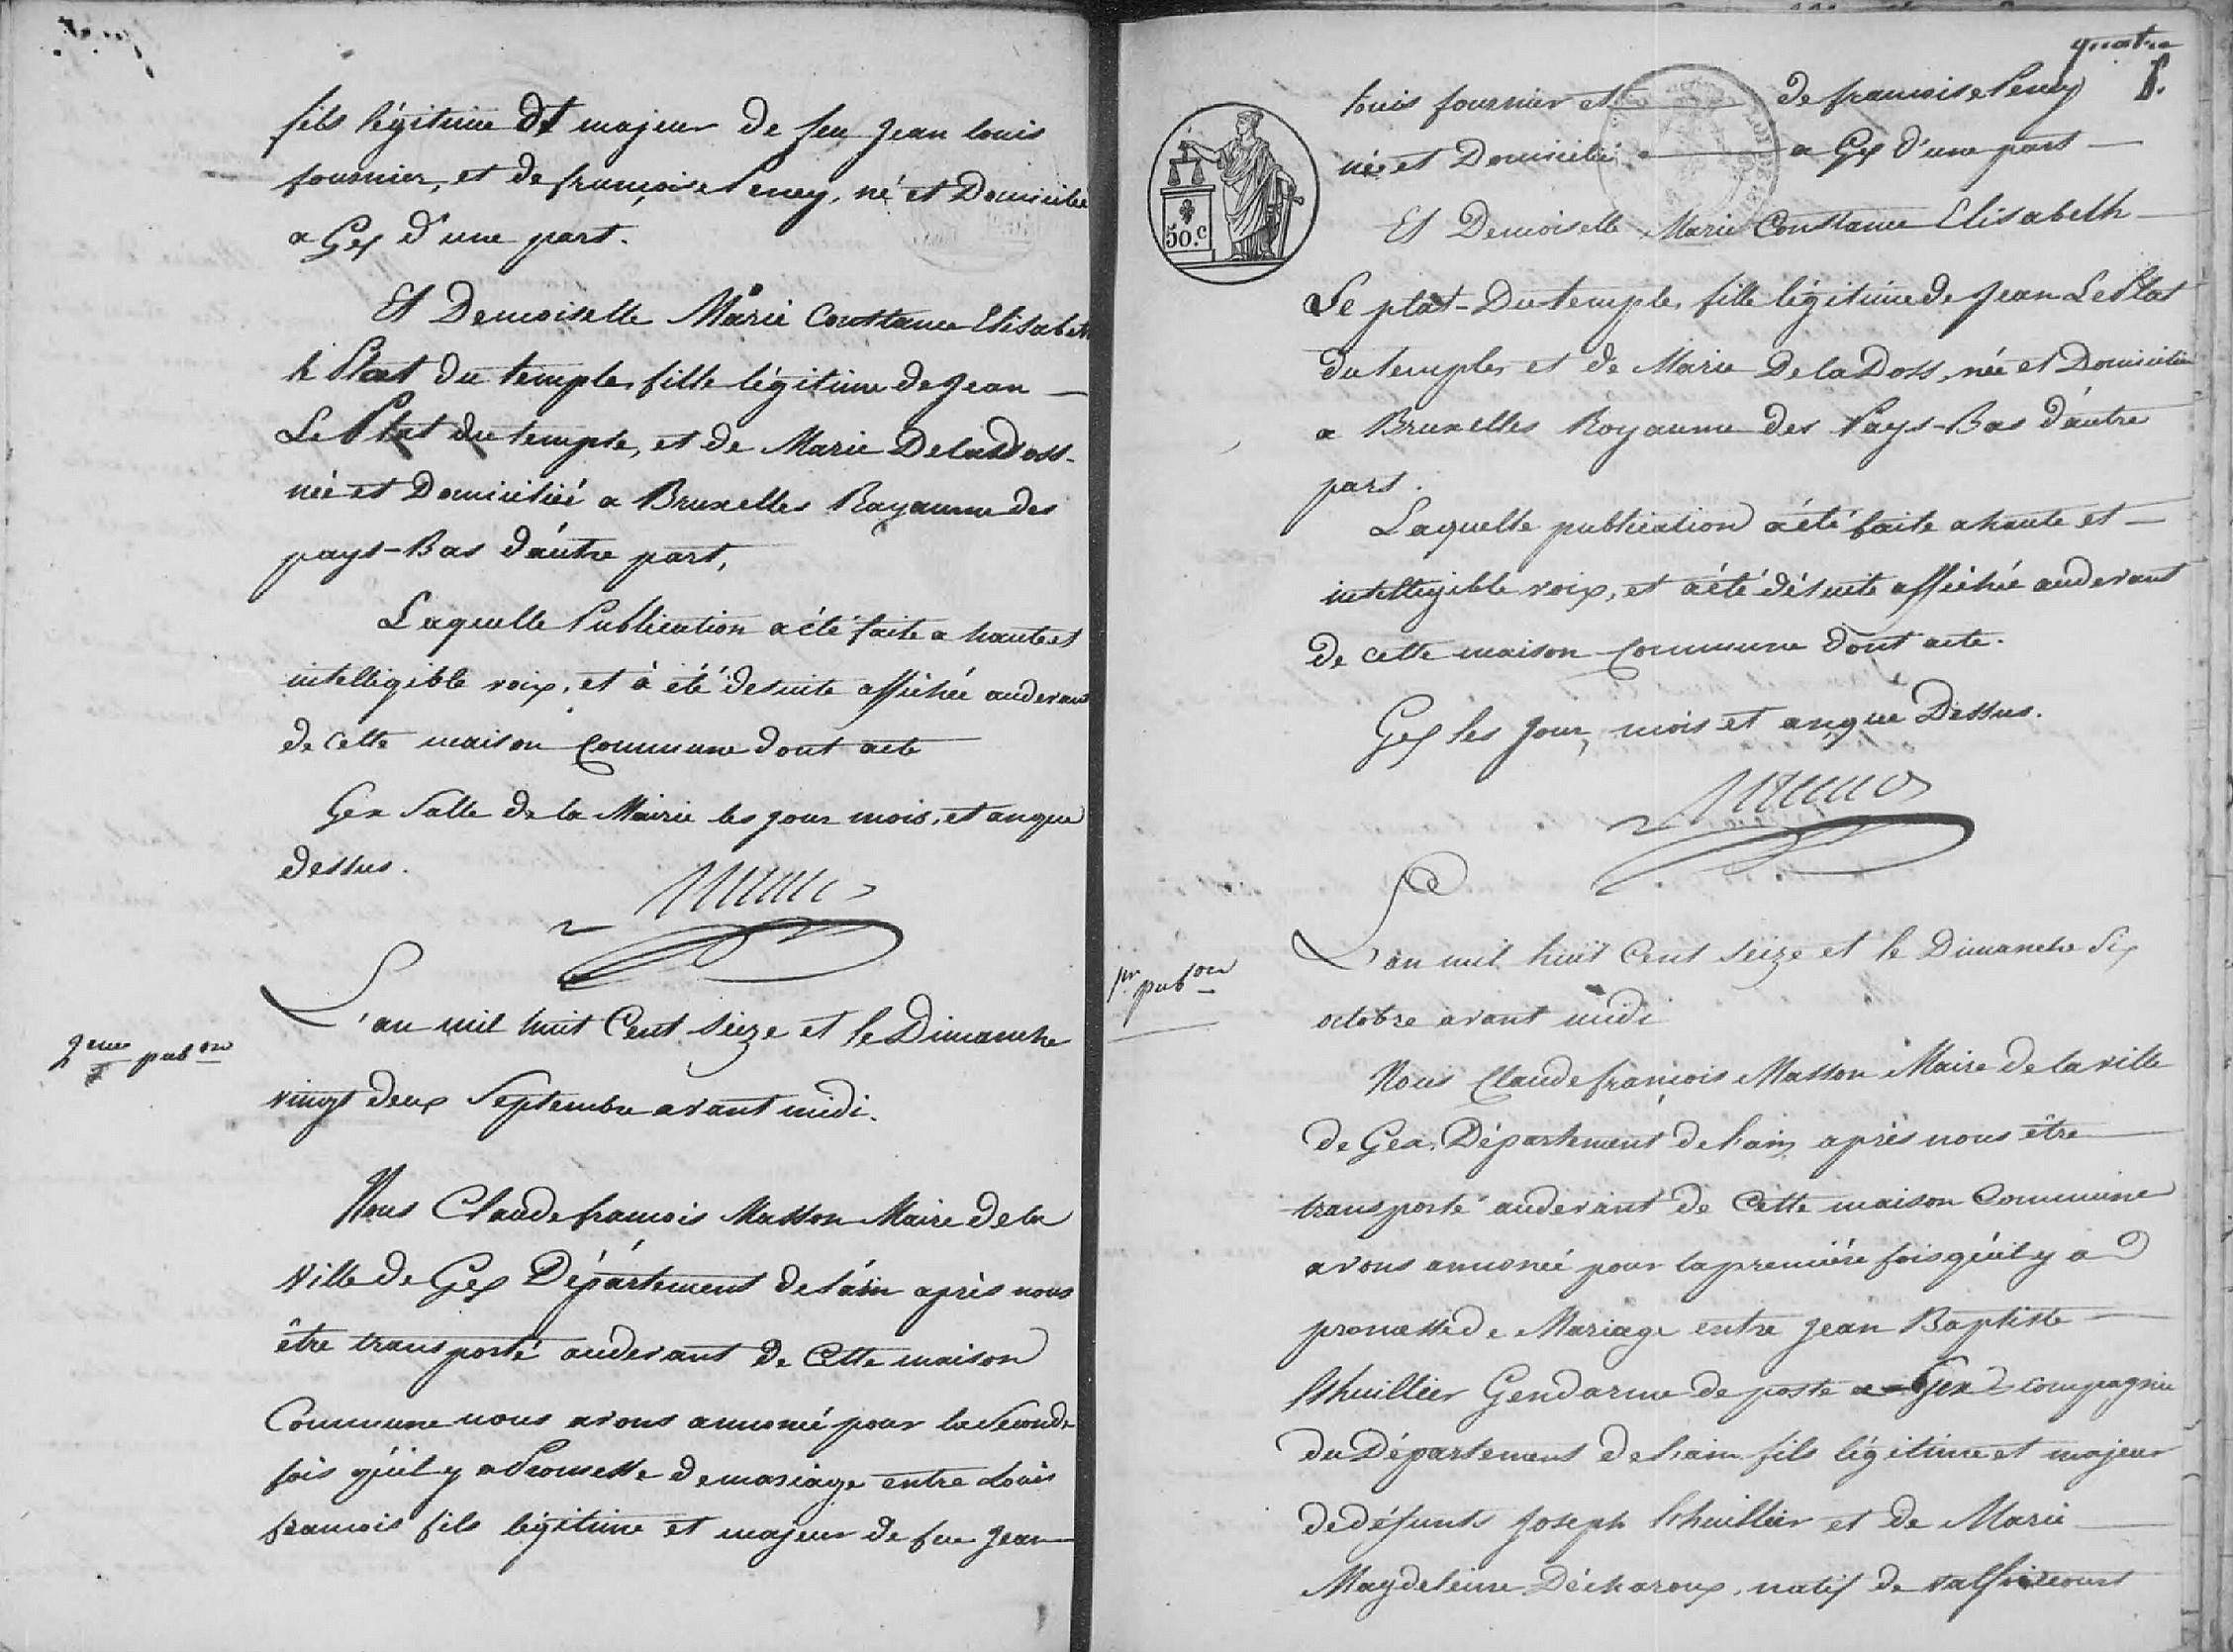 fils légitime et majeur de feu Jean louis
fournier, et de françoise Peney, né et Domicilié
a Gex d'une part.
Et Demoiselle Marie Constance Elisabeth
le Plat du temple, fille légitime de Jean
Le Plat du temple, et de Marie Deladoss
née et Domiciliée a Bruxelles Royaume des
pays-Bas d'autre part,
Laquelle Publication a été faite a haute et
intelligible voix, et à été de suite affichée audevant
de cette maison Commune dont acte
Gex Salle de la Mairie les jour mois, et an que
dessus.
2eme pubon
L'an mil huit Cent Seize et le Dimanche
vingt deux Septembre avant midi.
Nous Claude françois Masson Maire de la
Ville de Gex Département de l'ain après nous
être transporté audevant de Cette maison
Commune nous avons annoncé pour la Seconde
fois qu'il y a Promesse de mariage entre Louis
francois fils légitime et majeur de feu Jean
quatre
louis fournier et de francoise Peney
né et Domicilié a Gex d'une part
Et Demoiselle Marie Constance Elisabeth
Le plat-Du temple, fille légitime de Jean Le Plat
du temple, et de Marie De la Doss, née et Domiciliée
a Bruxelles Royaume des Pays-Bas d'autre
part.
Laquelle publication a été faite a haute et
intelligible voix, et a été de suite affichée audevant
de cette maison Commune dont acte.
Gex les Jour, mois et an que Dessus.
50.c
pr pubon
L'an mil huit Cent Seize et le Dimanche Six
octobre avant midi
Nous Claude françois Masson Maire de la ville
de Gex, Département de l'ain, après nous être
transporté audevant de Cette maison Commune
avons annoncé pour la première fois qu'il y a
promesse de Mariage entre Jean Baptiste
lhuillier Gendarme de poste a Gex compagnie
du Département de l'ain fils légitime et majeur
de défunts Joseph lhuillier et de Marie
Magdeleine Décharoux, natif de valfroicourt